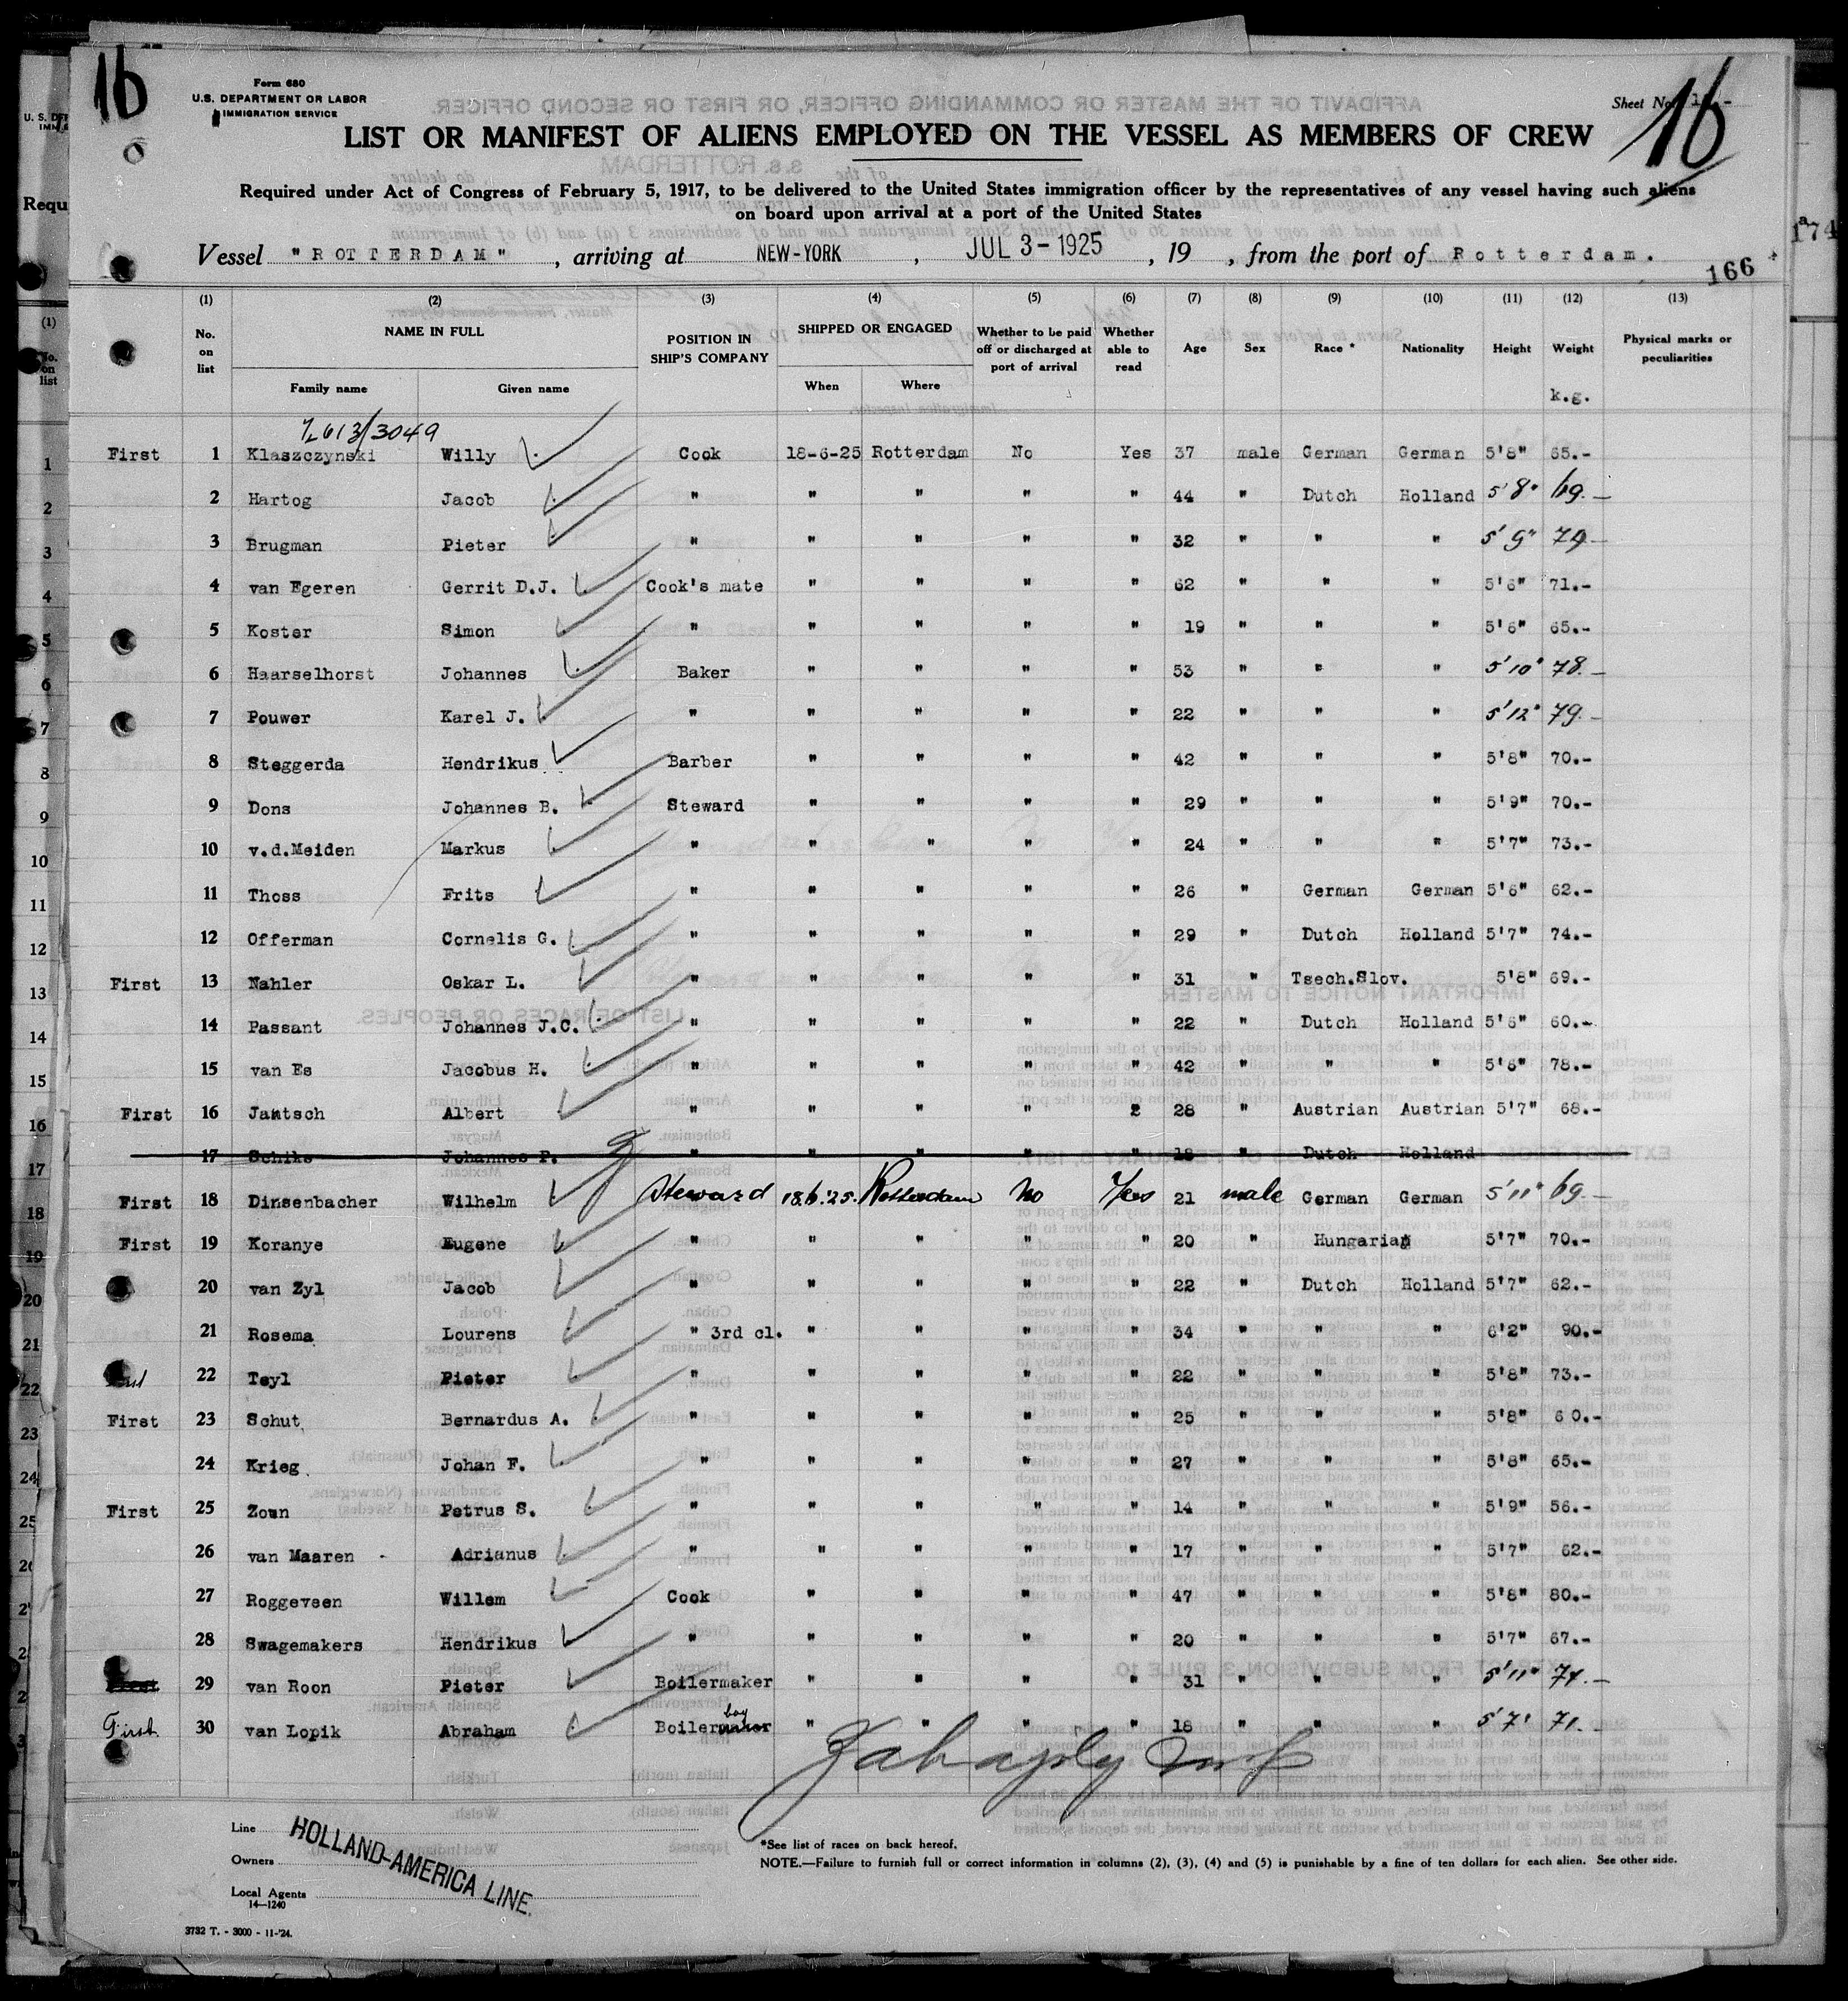 16
Form 680
U.S. DEPARTMENT OR LABOR
IMMIGRATION SERVICE
Sheet No. 16
LIST OR MANIFEST OF ALIENS EMPLOYED ON THE VESSEL AS MEMBERS OF CREW
Required under Act of Congress of February 5, 1917, to be delivered to the United States immigration officer by the representatives of any vessel having such aliens
on board upon arrival at a port of the United States
Vessel "ROTTERDAM", arriving at NEW-YORK, JUL 3-1925, 19 , from the port of Rotterdam.
166
174
(1) (2) (3) (4) (5) (6) (7) (8) (9) (10) (11) (12) (13)
No. on list NAME IN FULL POSITION IN SHIP'S COMPANY SHIPPED OR ENGAGED Whether to be paid off or discharged at port of arrival Whether able to read Age Sex Race * Nationality Height Weight Physical marks or peculiarities
Family name Given name When Where k.g.
3049
First 1 Klaszczynski Willy Cook 18-6-25 Rotterdam No Yes 37 male German German 5'8" 65.-
2 Hartog Jacob " " " " " 44 " Dutch Holland 5'8" 69.-
3 Brugman Pieter " " " " " 32 " " " 5'9" 74.-
4 van Egeren Gerrit D.J. Cook's mate " " " " 62 " " " 5'6" 71.-
5 Koster Simon " " " " " 19 " " " 5'6" 65.-
6 Haarselhorst Johannes Baker " " " " 53 " " " 5'10" 78.-
7 Pouwer Karel J. " " " " " 22 " " " 5'12" 79.-
8 Steggerda Hendrikus Barber " " " " 42 " " " 5'8" 70.-
9 Dons Johannes B. Steward " " " " 29 " " " 5'9" 70.-
10 v.d.Meiden Markus " " " " " 24 " " " 5'7" 73.-
11 Thoss Frits " " " " " 26 " German German 5'6" 62.-
12 Offerman Cornelis G. " " " " " 29 " Dutch Holland 5'7" 74.-
First 13 Nahler Oskar L. " " " " " 31 " Tsech.Slov. 5'8" 69.-
14 Passant Johannes J.C. " " " " " 22 " Dutch Holland 5'6" 60.-
15 van Es Jacobus H. " " " " " 42 " " " 5'6" 78.-
First 16 Jantsch Albert " " " " " 28 " Austrian Austrian 5'7" 68.-
17 Schiks Johannes P. " " " " " 18 " Dutch Holland
First 18 Dinsenbacher Wilhelm Steward 18.6.'25. Rotterdam No Yes 21 male German German 5'11" 69.-
First 19 Koranye Eugene " " " " " 20 " Hungarian 5'7" 70.-
20 van Zyl Jacob " " " " " 22 " Dutch Holland 5'7" 62.-
21 Rosema Lourens " 3rd cl. " " " " 34 " " " 6'2" 90.-
22 Teyl Pieter " " " " " 22 " " " 5'8" 73.-
First 23 Schut Bernardus A. " " " " " 25 " " " 5'8" 60.-
24 Krieg Johan F. " " " " " 27 " " " 5'8" 65.-
First 25 Zown Petrus S. " " " " " 14 " " " 5'9" 56.-
26 van Maaren - Adrianus " " " " " 17 " " " 5'7" 62.-
27 Roggeveen Willem Cook " " " " 47 " " " 5'8" 80.-
28 Swagemakers Hendrikus " " " " " 20 " " " 5'7" 67.-
First 29 van Roon Pieter Boilermaker " " " " 31 " " " 5'11" 74.-
First 30 van Lopik Abraham Boilermaker boy " " " " 18 " " " 5'7" 71.-
Line
HOLLAND-AMERICA LINE.
Owners
Local Agents
14—1240
*See list of races on back hereof.
NOTE.—Failure to furnish full or correct information in columns (2), (3), (4) and (5) is punishable by a fine of ten dollars for each alien. See other side.
3732 T. - 3000 - 11-'24.